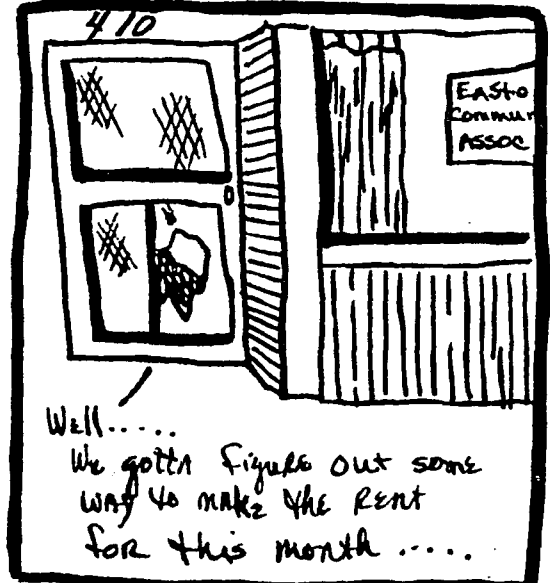 410
EASto
Commun
ASSOC
Well.....
We gotta figure out some
way to make the Rent
for this month .....